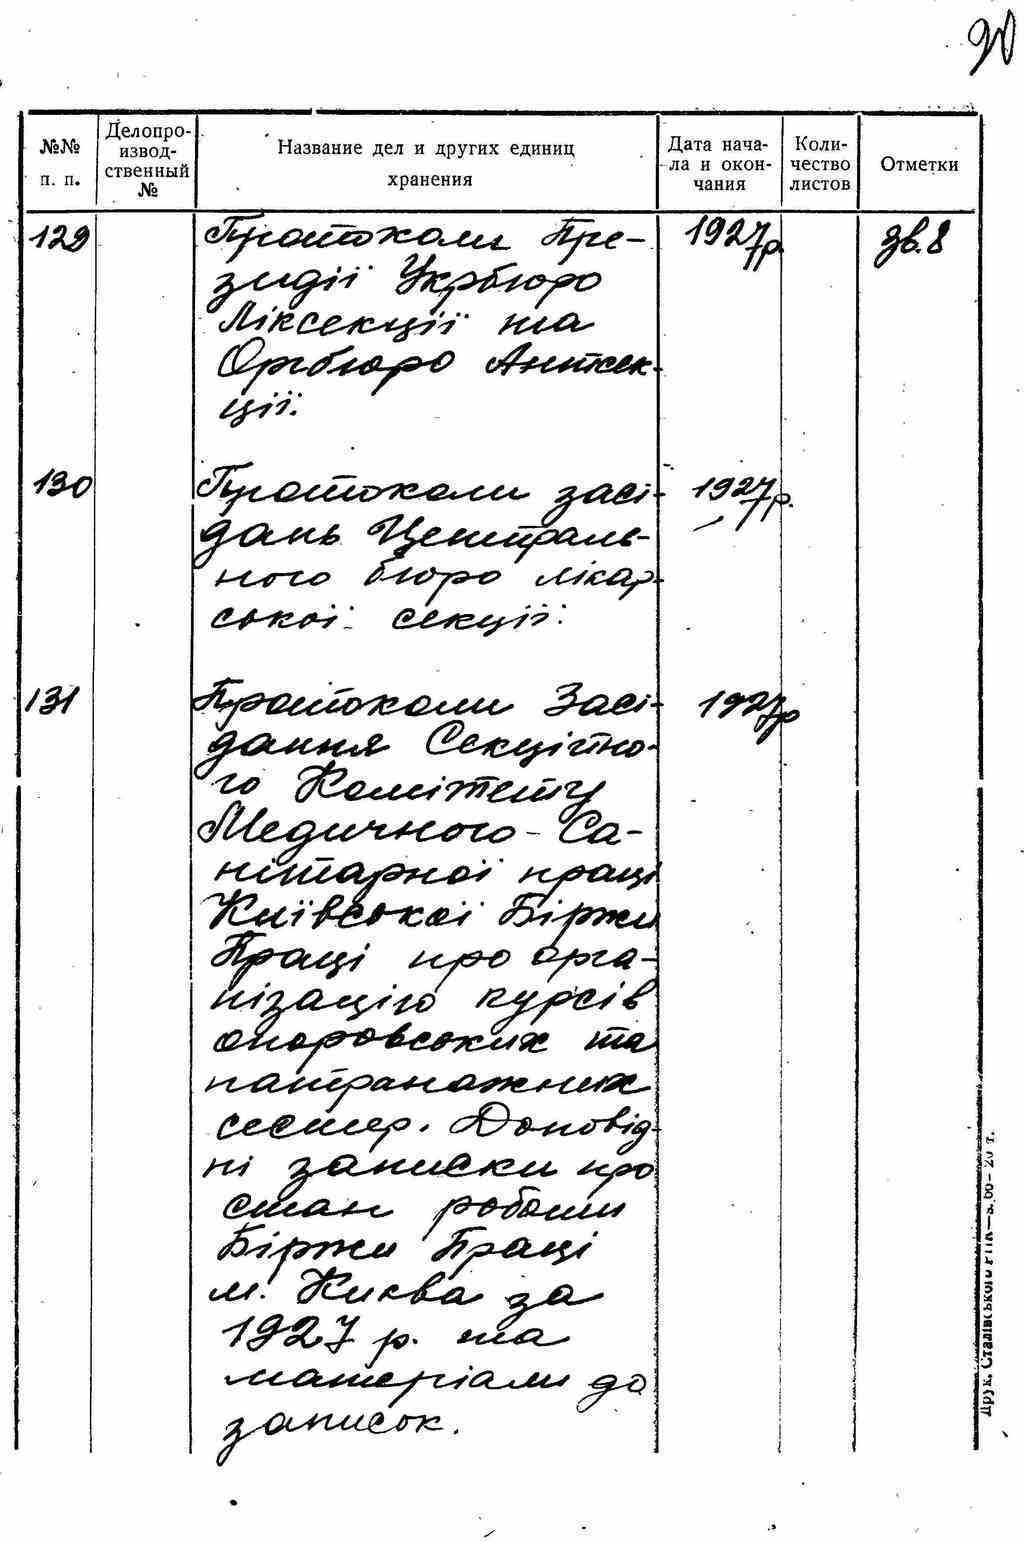 20
№№ п. п.
Делопро-
извод-
ственный
№
Название дел и других единиц
хранения
Дата нача-
ла и окон-
чания
Коли-
чество
листов
Отметки
129 Протоколи Пре- 1927 р. зв. 8
зидії Укрбюро
Ліксекції та
Оргбюро Антсек-
ції.
130 Протоколи засі- 1927 р.
дань Централь-
ного бюро лікар-
ської секції.
131 Протоколи Засі- 1927 р
дання Секційно-
го Комітету
Медичного-Са-
нітарної праці
Київської Біржи
Праці про орга-
нізацію курсів
охоровських та
патранажних
сестер. Доповід-
ні записки про
стан роботи
Біржи Праці
м. Києва за
1927 р. та
матеріали до
записок.